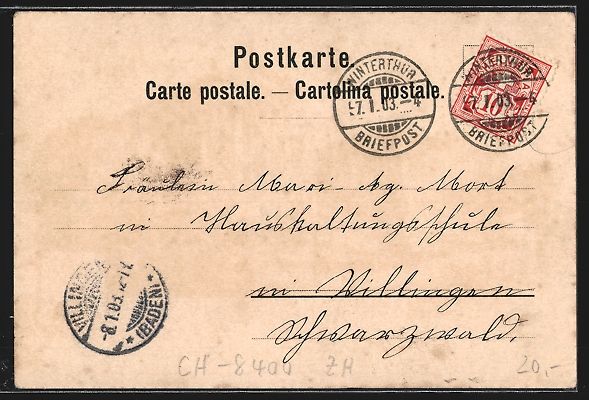 Postkarte.
Carte postale. — Cartolina postale.
WINTERTHUR
-7.1.03.-4
BRIEFPOST
WINTERTHUR
-7.1.03.-4
BRIEFPOST
10
Fräulein Mari- Ag. Mort
in Haushaltungsschule
in Villingen
Schwarzwald.
VILLINGEN
-8.1.03.
(BADEN)
CH-8400 ZH
20,-